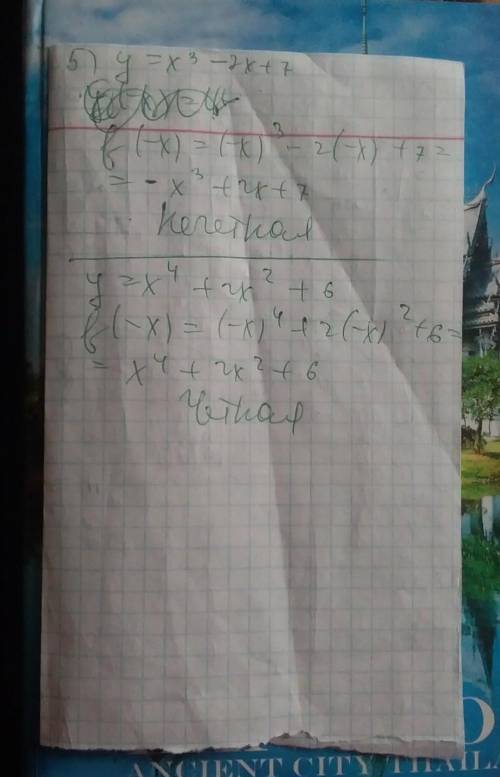 5) y = x³ - 2x + 7
f(-x) = (-x)³ - 2(-x) + 7 =
= - x³ + 2x + 7
Нечеткая
y = x⁴ + 2x² + 6
f(-x) = (-x)⁴ + 2(-x)² + 6 =
= x⁴ + 2x² + 6
Четкая
ANCIENT CITY THAIL